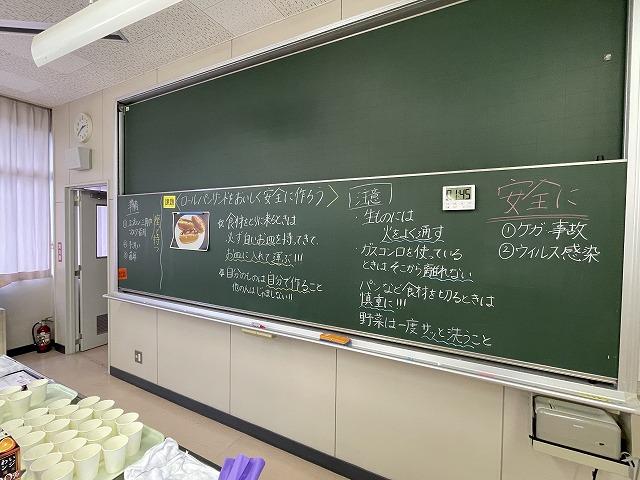 準備
手洗い
座って待つ
課題
<ロールパンサンドをおいしく安全に作ろう>
※食材をとりに来るときは
必ず白いお皿を持ってきて、
お皿に入れて運ぶ!!!
※自分のものは自分で作ること
他の人はじゃましない!!
注意
・生ものには
火をよく通す
・ガスコンロを使っている
ときはそこから離れない
・パンなど食材を切るときは
慎重に!!!
・野菜は一度サッと洗うこと
安全に
①ケガ・事故
②ウイルス感染